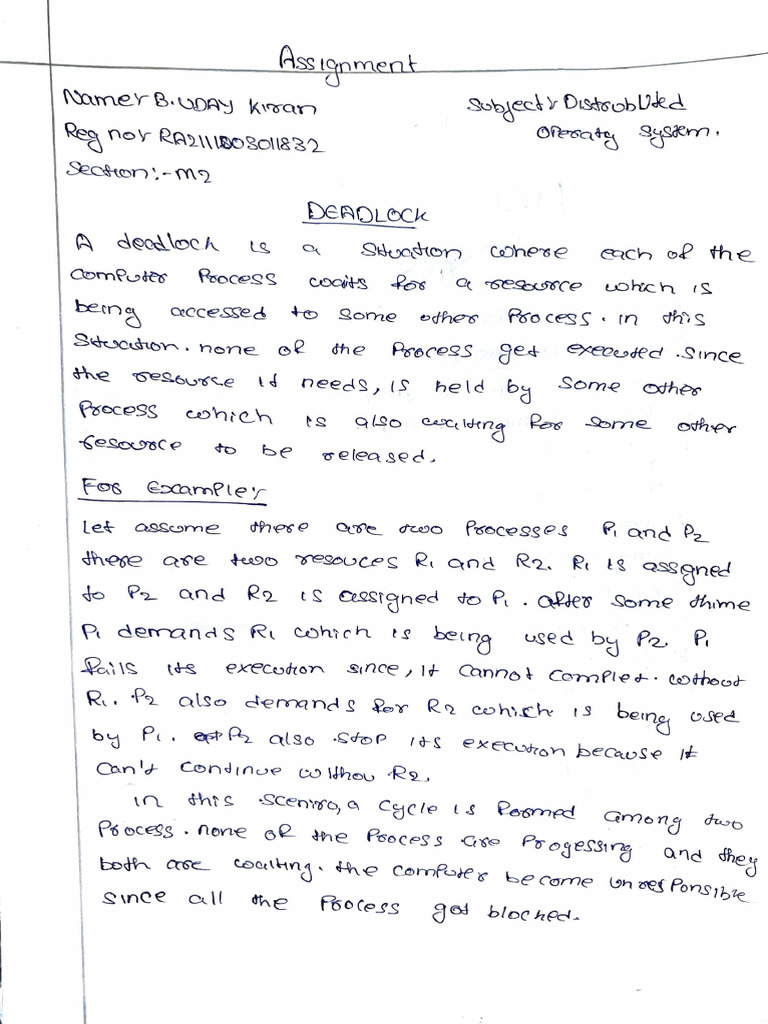 Assignment
Name:- B. UDAY Kiran
Subject:- DistrobUted
Reg no:- RA2111003011832
Operaty System.
Section:- M2
DEADLOCK
A deadlock is a situation where each of the
computer process waits for a resource which is
being accessed to some other process. in this
Situation. none of the process get executed. since
the resource it needs, is held by some other
process which is also waiting for some other
resource to be released.
For Example:-
Let assume there are two processes P1 and P2
there are two resouces R1 and R2. R1 is assigned
to P2 and R2 is assigned to P1. after some thime
P1 demands R1 which is being used by P2. P1
fails its execution since, it cannot complet. without
R1. P2 also demands for R2 which is being used
by P1. P2 also stop its execution because it
can't continue withou R2.
in this sceniro, a cycle is formed among two
process. none of the process are progessing and they
both are waiting. the computer become unresponsible
since all the process got blocked.